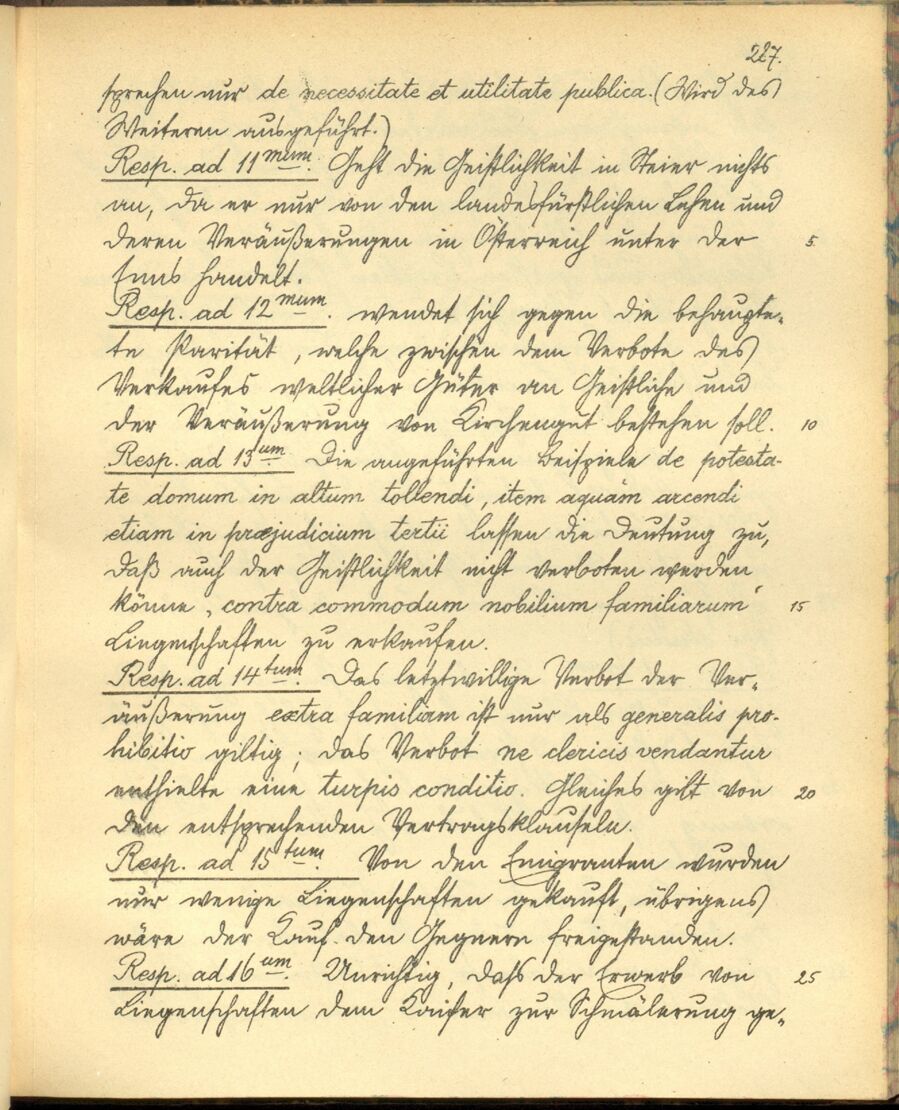 227.
sprechen nur de necessitate et utilitate publica. (Wird des
Weiteren ausgeführt.)
Resp. ad 11mum. Geht die Geistlichkeit in Steier nichts
an, da er nur von den landesfürstlichen Lehen und
deren Veräußerungen in Österreich unter der 5
Enns handelt.
Resp. ad 12mum. wendet sich gegen die behaupte-
te Parität, welche zwischen dem Verbote des
Verkaufes weltlicher Güter an Geistliche und
der Veräußerung von Kirchengut bestehen soll. 10
Resp. ad 13um. Die angeführten Beispiele de potesta-
te domum in altum tollendi, item aquam arcendi
etiam in præjudicium tertii lassen die Deutung zu,
daß auch der Geistlichkeit nicht verboten werden
könne „contra commodum nobilium familiarum“ 15
Liegenschaften zu erkaufen.
Resp. ad 14tum. Das letztwillige Verbot der Ver-
äußerung extra familiam ist nur als generalis pro-
hibitio giltig; das Verbot ne clericis vendantur
enthielte eine turpis conditio. Gleiches gilt von 20
den entsprechenden Vertragsklauseln.
Resp. ad 15tum. Von den Emigranten wurden
nur wenige Liegenschaften gekauft, übrigens
wäre der Kauf den Gegnern freigestanden.
Resp. ad 16um. Unrichtig, dass der Erwerb von 25
Liegenschaften dem Kaiser zur Schmälerung ge-